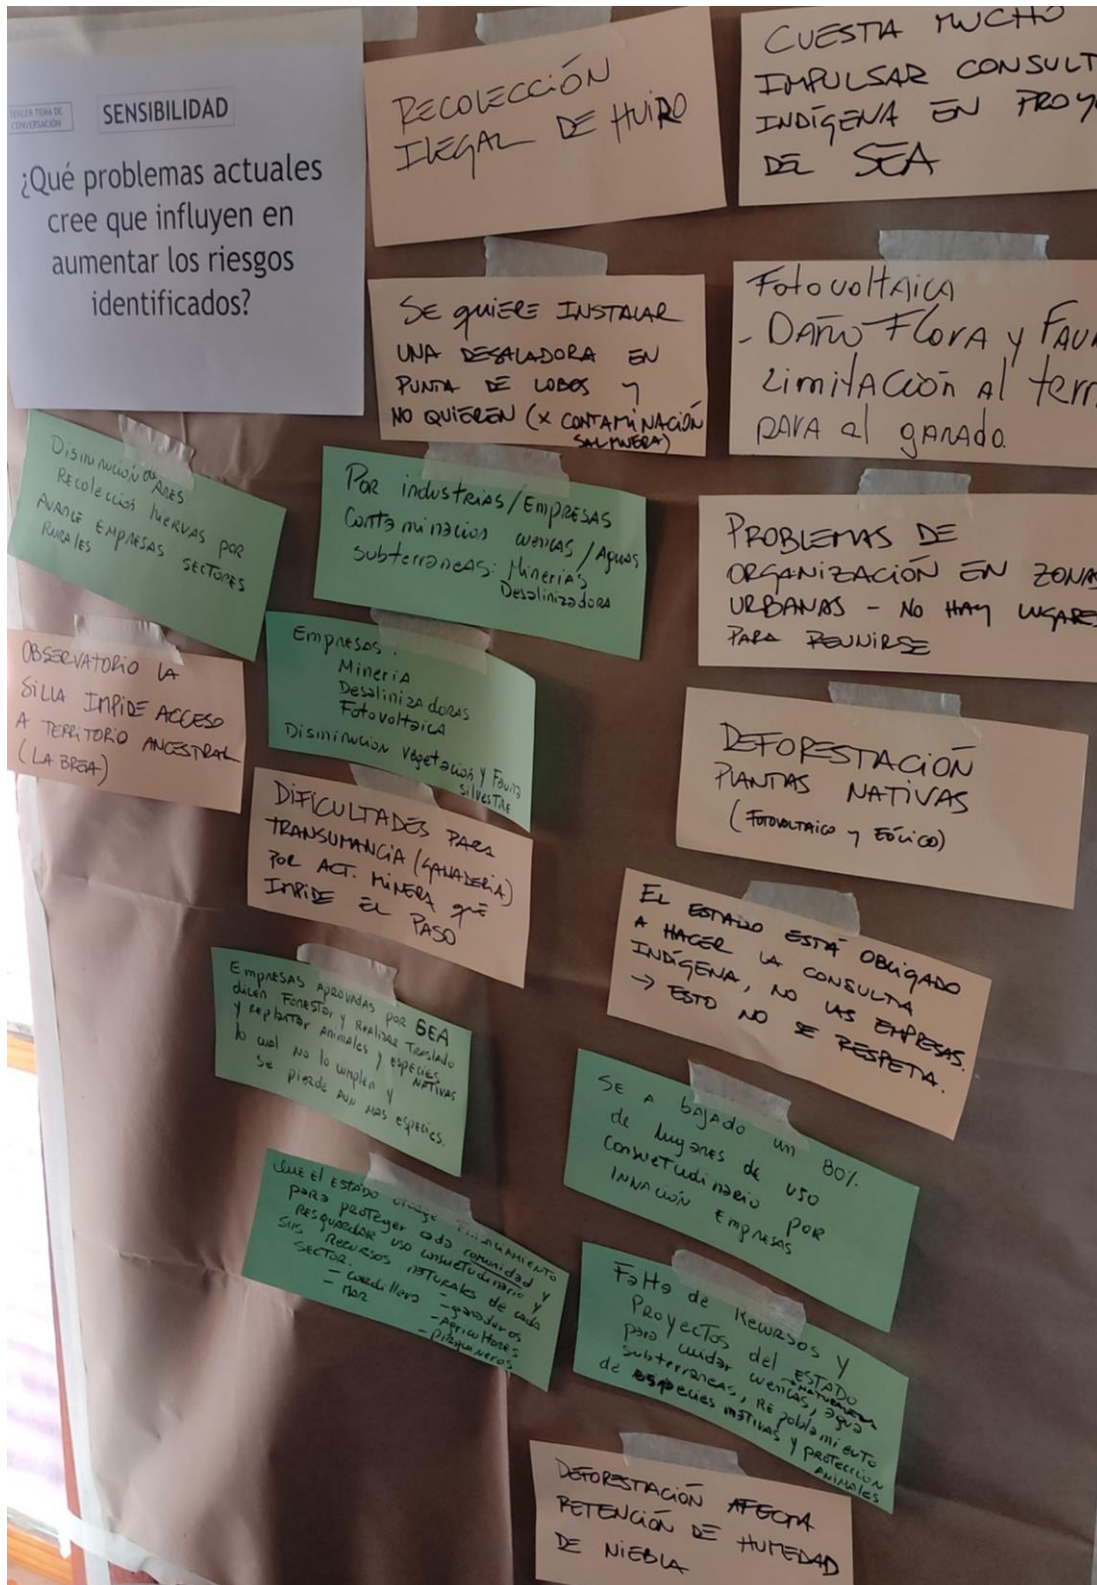 TERCER TEMA DE
CONVERSACIÓN
SENSIBILIDAD
¿Qué problemas actuales
cree que influyen en
aumentar los riesgos
identificados?
RECOLECCIÓN
ILEGAL DE HUIRO
CUESTA MUCHO
IMPULSAR CONSULT
INDÍGENA EN PROY
DEL SEA
SE QUIERE INSTALAR
UNA DESALADORA EN
PUNTA DE LOBOS Y
NO QUIEREN (X CONTAMINACIÓN
SALMUERA)
Fotovoltaica
- DAÑO FLORA y FAU
Limitación al terr
para al ganado.
Disminución de Aves
Recolección hiervas por
AVANCE EMPRESAS SECTORES
RURALES
Por industrias/Empresas
Contaminación cuencas/Aguas
subterráneas: Minerías
Desalinizadora
PROBLEMAS DE
ORGANIZACIÓN EN ZONAS
URBANAS - NO HAY LUGARES
PARA REUNIRSE
OBSERVATORIO LA
SILLA IMPIDE ACCESO
A TERRITORIO ANCESTRAL
(LA BREA)
Empresas:
Minería
Desalinizadoras
Fotovoltaica
Disminucion Vegetacion y Fauna
silvestre
DEFORESTACIÓN
PLANTAS NATIVAS
(FOTOVOLTAICO Y EÓLICO)
DIFICULTADES PARA
TRANSUMANCIA (GANADERÍA)
POR ACT. MINERA QUE
IMPIDE EL PASO
EL ESTADO ESTÁ OBLIGADO
A HACER LA CONSULTA
INDÍGENA, NO LAS EMPRESAS.
→ ESTO NO SE RESPETA.
Empresas aprovadas por SEA
dicen Forestar y Realizar Traslado
y replantar Animales y especies
NATIVAS
lo cual no lo cumplen y
se pierde aun mas especies.
SE A bajado un 80%
de lugares de uso
Consuetudinario por
Empresas
Que el ESTADO
para proteger cada comunidad y
RESGUARDAR uso consuetudinario y
sus recursos naturales de cada
SECTOR.
- cordillera - ganaderos
- MAR - Agricultores
- pirquineros
Falta de Recursos y
Proyectos del ESTADO
para cuidar cuencas, agua
subterraneas, Repoblamiento
de especies nativas y protección
ANIMALES
DEFORESTACIÓN AFECTA
RETENCIÓN DE HUMEDAD
DE NIEBLA